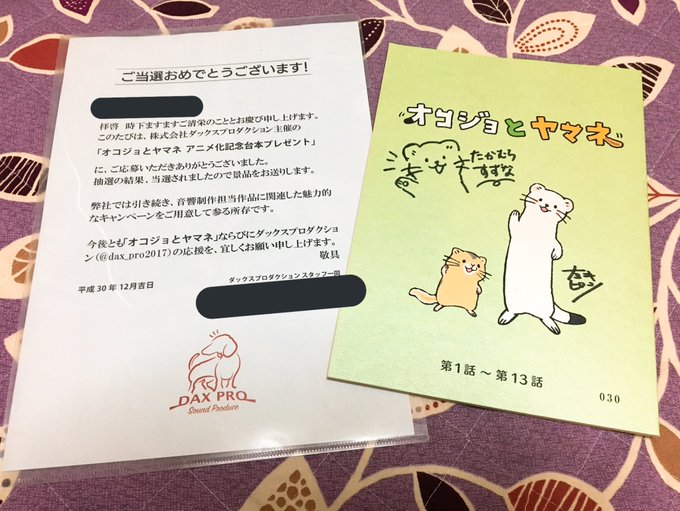 ご当選おめでとうございます!
拝啓 時下ますますご清栄のこととお慶び申し上げます。
このたびは、株式会社ダックスプロダクション主催の
「オコジョとヤマネ アニメ化記念台本プレゼント」
に、ご応募いただきありがとうございました。
抽選の結果、当選されましたので景品をお送りします。
弊社では引き続き、音響制作担当作品に関連した魅力的
なキャンペーンをご用意して参る所存です。
今後とも「オコジョとヤマネ」ならびにダックスプロダクショ
ン(@dax_pro2017)の応援を、宜しくお願い申し上げます。
敬具
平成30年12月吉日
ダックスプロダクション スタッフ一同
DAX PRO
Sound Produce
オコジョとヤマネ
たかむら
すずな
第1話～第13話
030